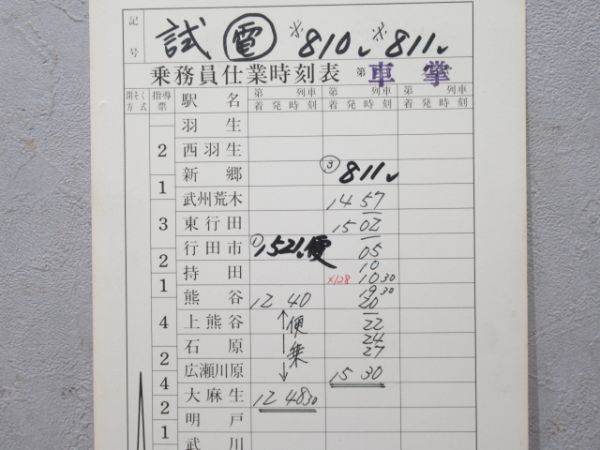 記号 試 電 ※810レ ※811レ
乗務員仕業時刻表 第 車掌
閉そく方式 指導票 駅名 第 列車 着発時刻 第 列車 着発時刻 第 列車 着発時刻
羽生
2
西羽生
新郷 ③ 811レ
1
武州荒木 14 57
3
東行田 15 02
行田市 ① 1521,便 05
2
持田 10
×128 10 30
1
熊谷 12 40 19 30
20
上熊谷 便 22
4
石原 乗 24
27
2
広瀬川原 15 30
4
大麻生 12 48 30
2
明戸
1
武川